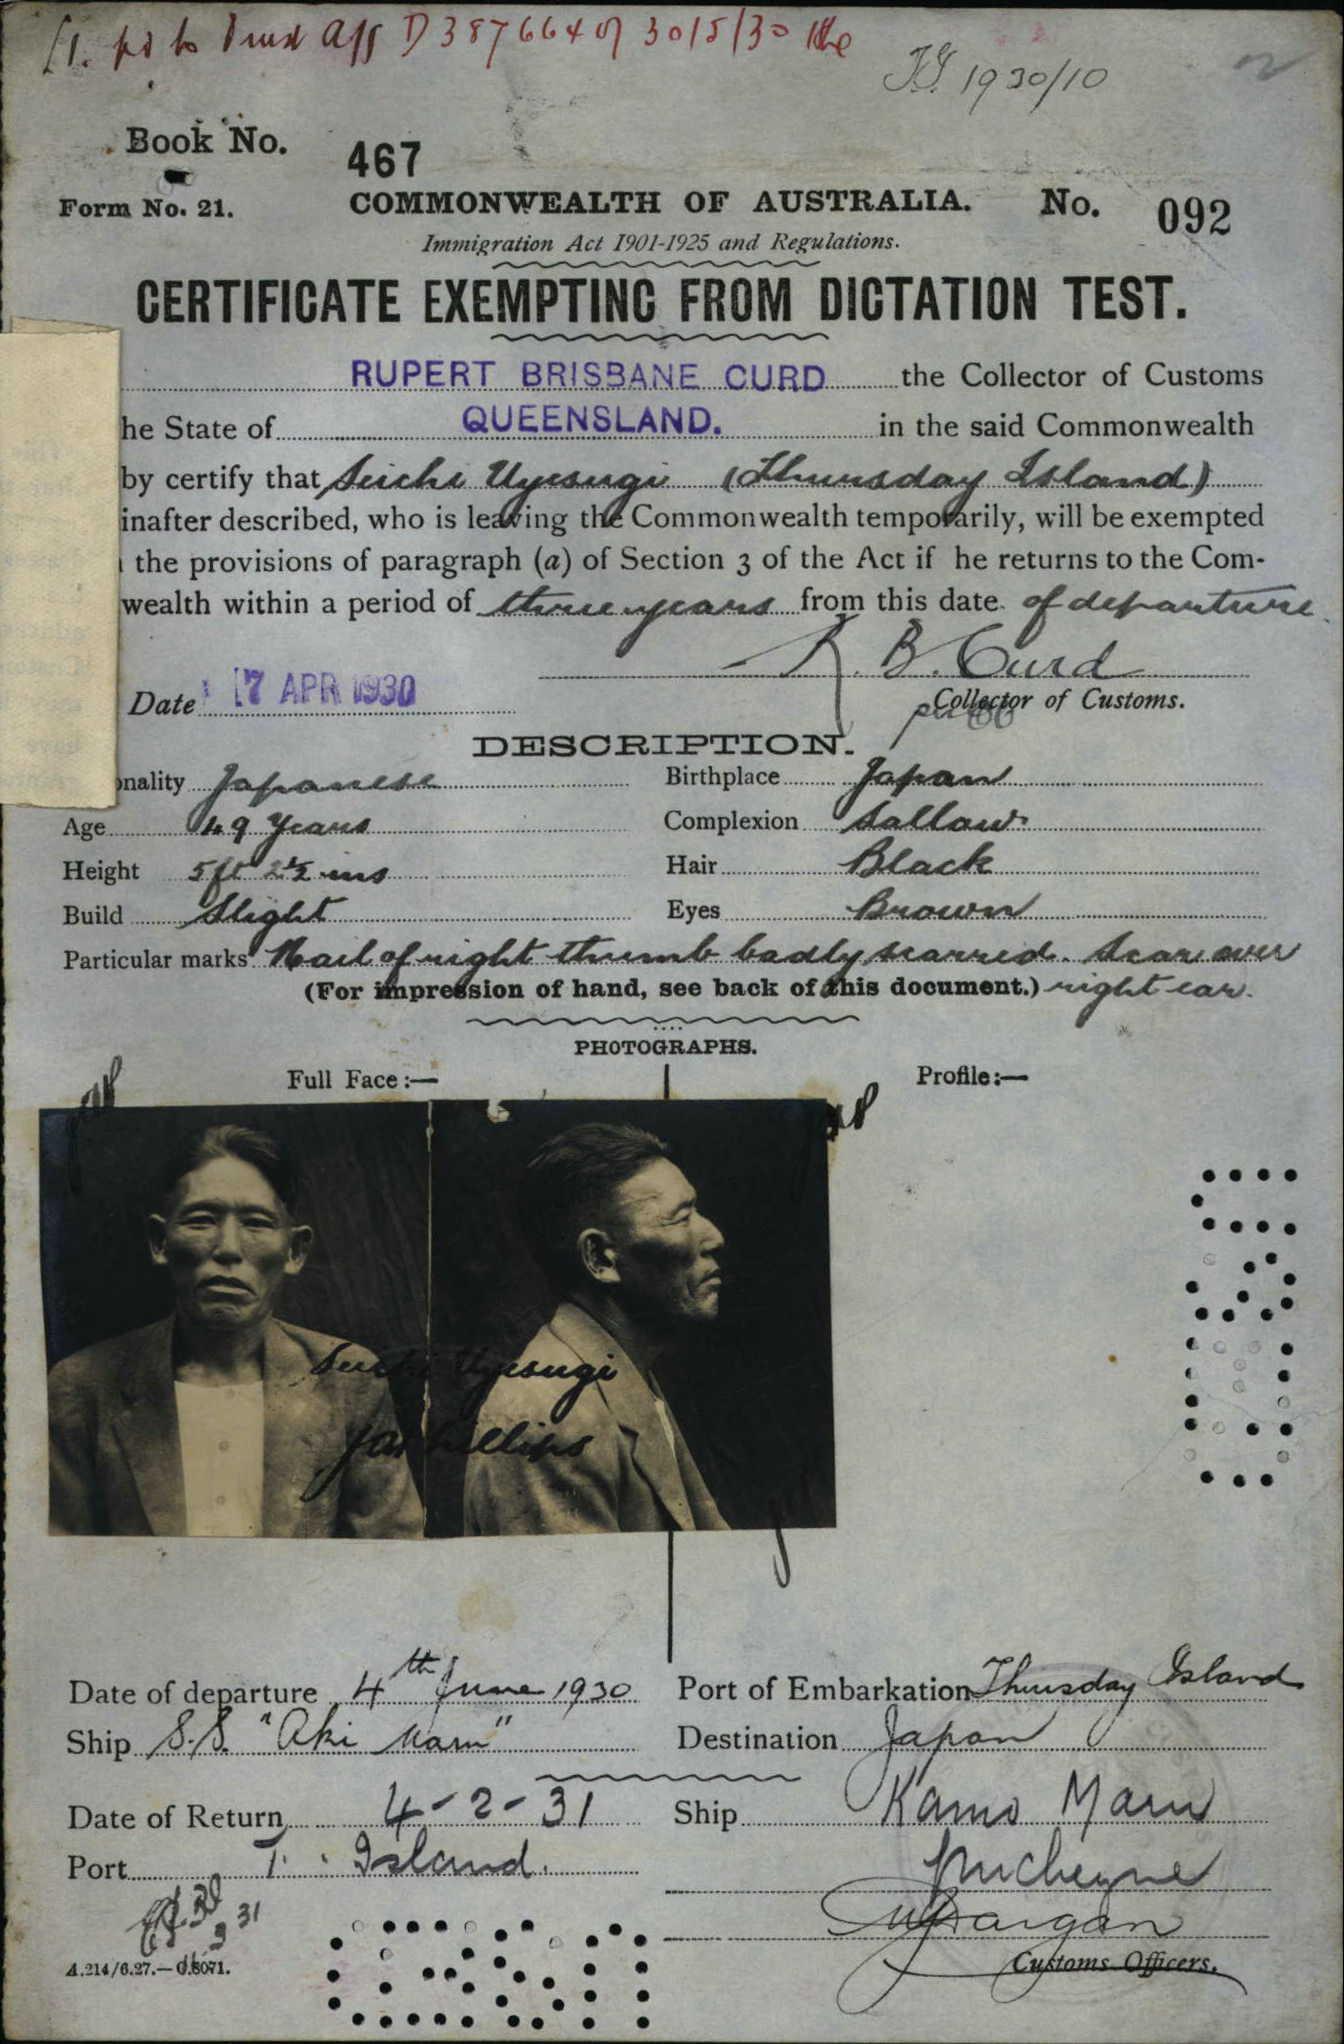 D387664 of 30/5/30
1930/10
Book No. 467
Form No. 21. COMMONWEALTH OF AUSTRALIA. No. 092
Immigration Act 1901-1925 and Regulations.
CERTIFICATE EXEMPTING FROM DICTATION TEST.
RUPERT BRISBANE CURD the Collector of Customs
he State of QUEENSLAND. in the said Commonwealth
by certify that Seichi Uyesugi (Thursday Island)
inafter described, who is leaving the Commonwealth temporarily, will be exempted
the provisions of paragraph (a) of Section 3 of the Act if he returns to the Com-
wealth within a period of three years from this date of departure
R. B. Curd
Date 17 APR 1930 Collector of Customs.
DESCRIPTION.
onality Japanese Birthplace Japan
Age 49 Years Complexion Sallow
Height 5ft 2½ ins Hair Black
Build Slight Eyes Brown
Particular marks Nail of right thumb badly scarred. Scar over
(For impression of hand, see back of this document.) right ear.
PHOTOGRAPHS.
Full Face:— Profile:—
Seichi Uyesugi
Date of departure 4th June 1930 Port of Embarkation Thursday Island
Ship S.S. "Aki Maru" Destination Japan
Date of Return 4-2-31 Ship Kamo Maru
Port T. Island.
31
A.214/6.27.—C.8071. Customs Officers.